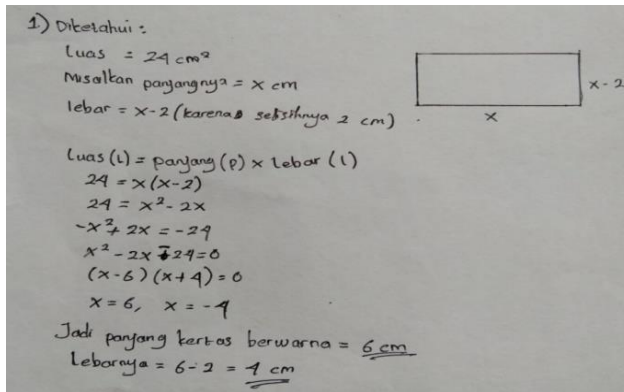 1.) Diketahui :
Luas = 24 cm²
Misalkan panjangnya = x cm
lebar = x-2 (karena selisihnya 2 cm)
x-2
x
Luas (L) = panjang (p) x lebar (l)
24 = x(x-2)
24 = x² - 2x
-x² + 2x = -24
x² - 2x - 24 = 0
(x-6)(x+4) = 0
x = 6, x = -4
Jadi panjang kertas berwarna = 6 cm
Lebarnya = 6-2 = 4 cm